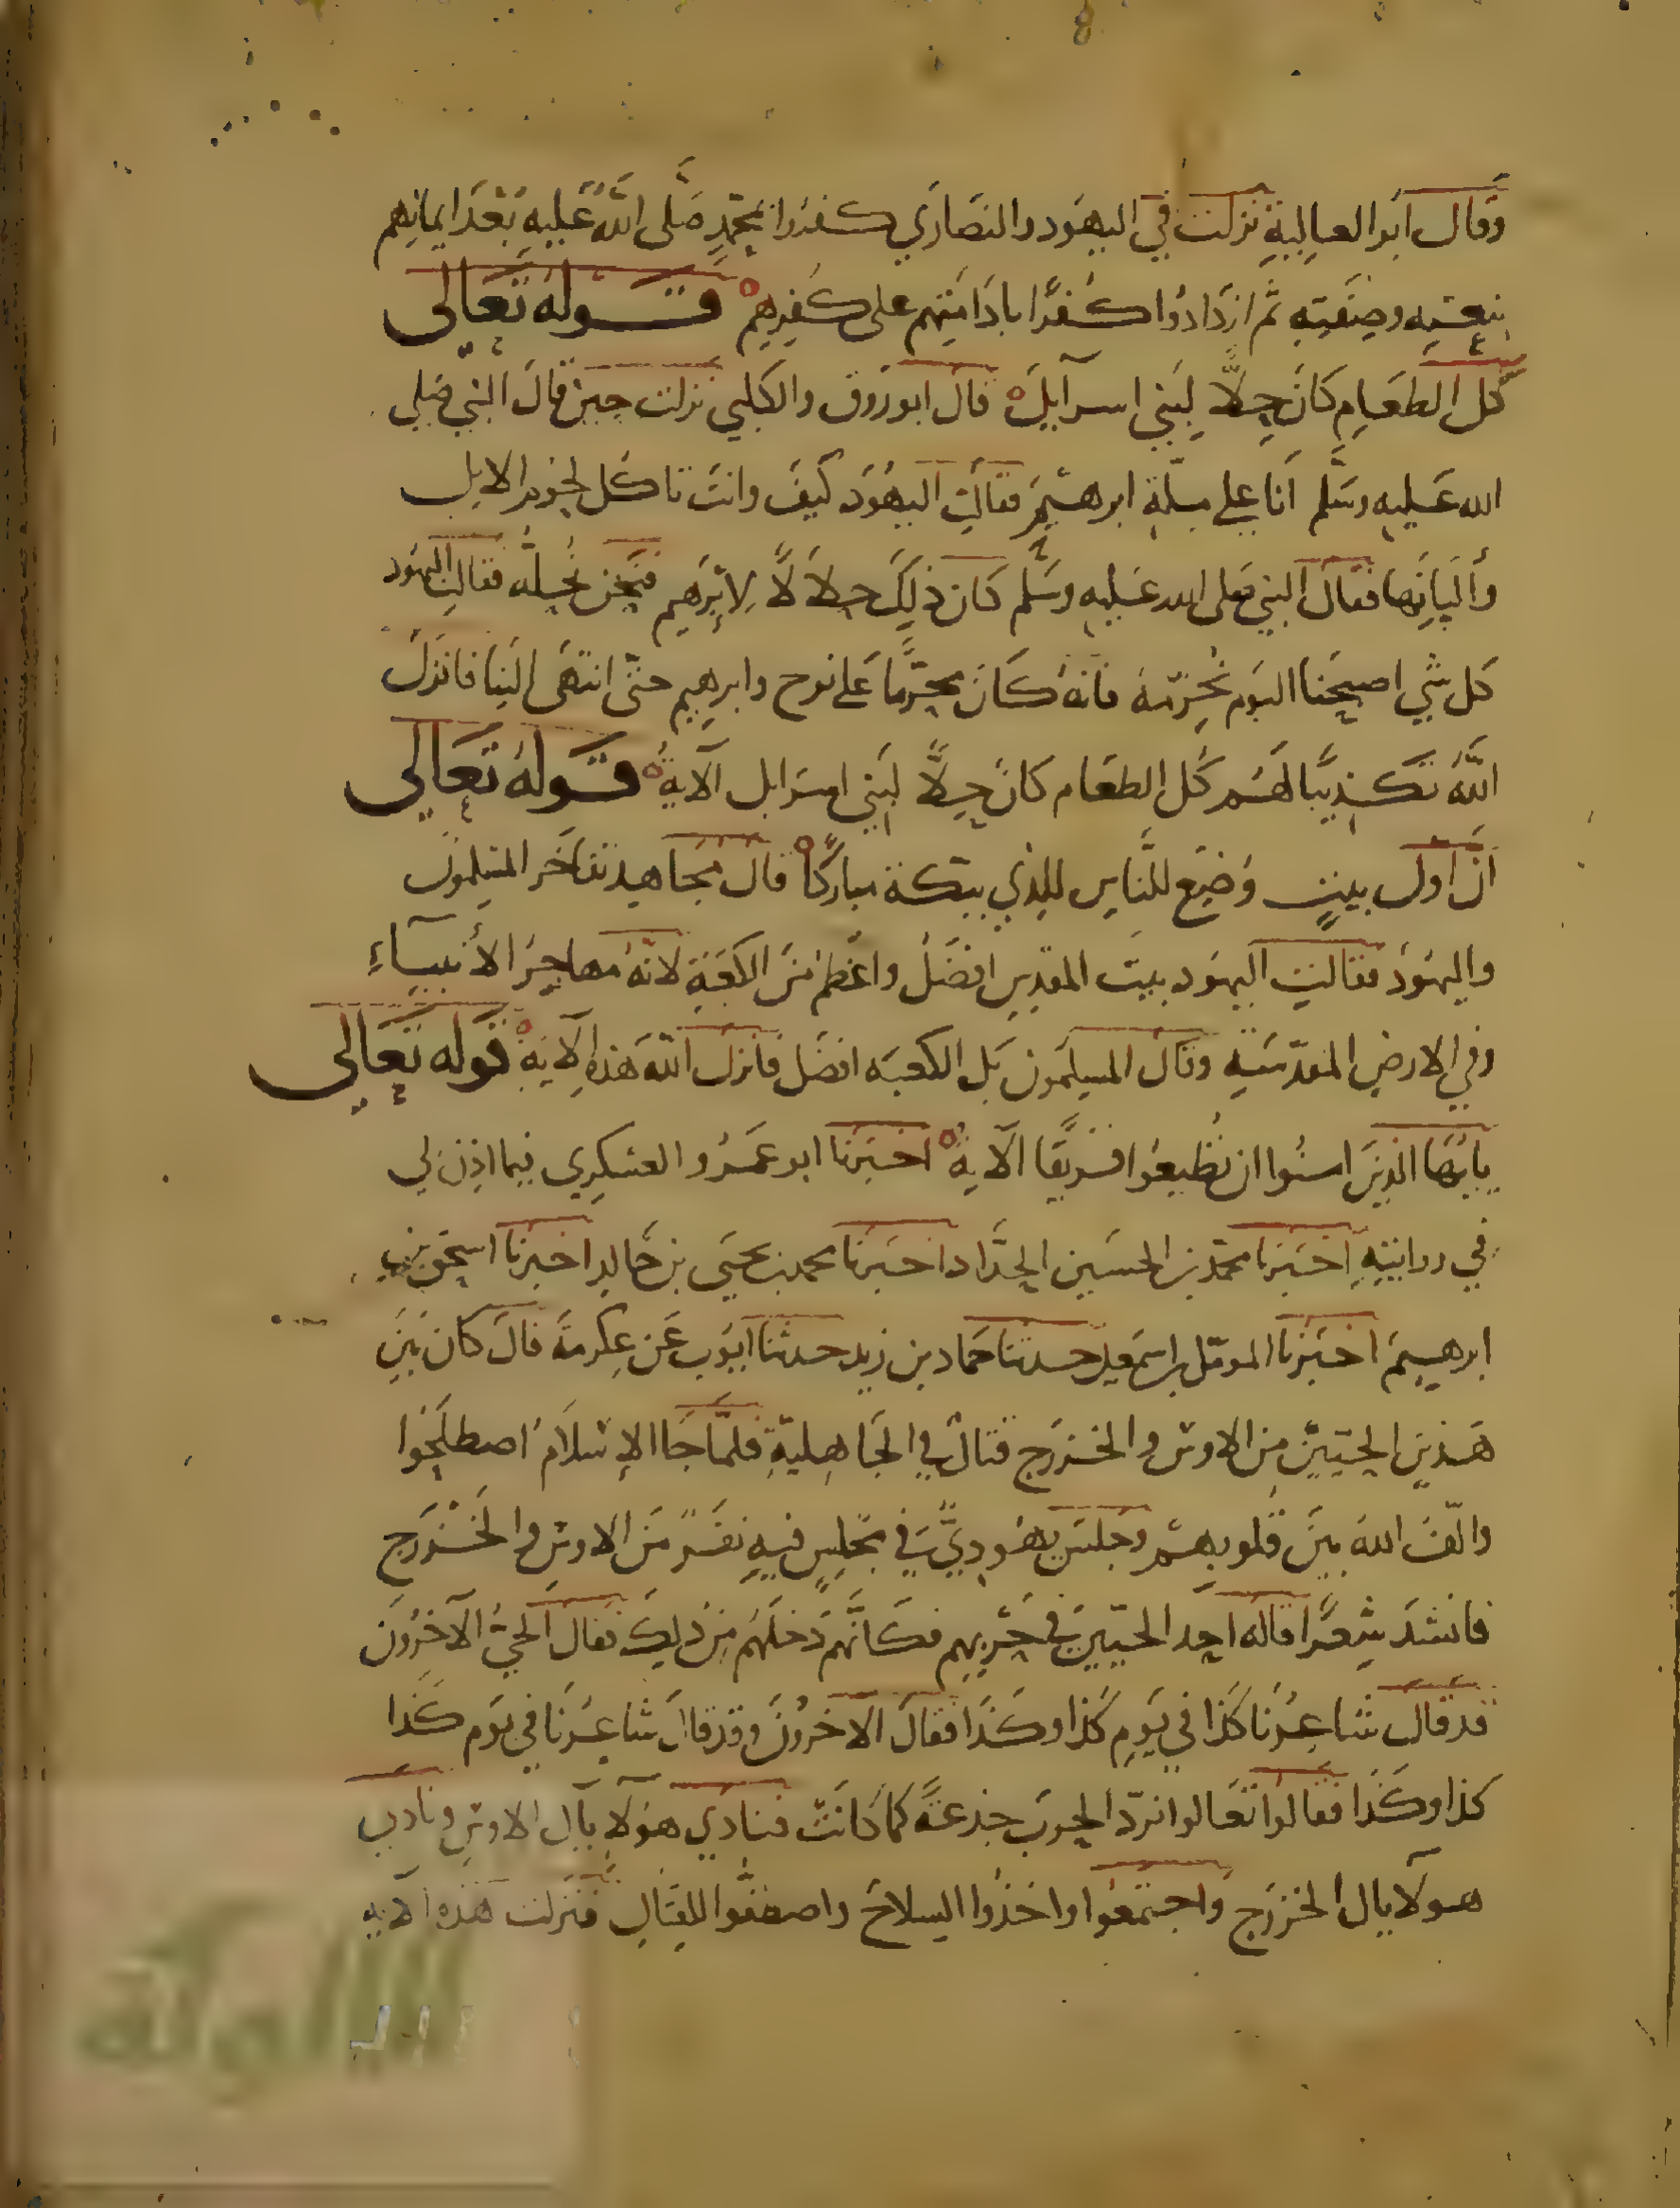 وقال ابو العالية نزلت في اليهود والنصاري كفروا بمحمد صلى الله عليه بعد ايمانهم
بنعته وصفته ثم ازدادوا كفرا باقامتهم على كفرهم ه قوله تعالى
كل الطعام كان حلا لبني اسرآيل ه قال ابو روق والكلبي نزلت حين قال النبي صلى
الله عليه وسلم انا على ملة ابرهيم فقالت اليهود كيف وانت تاكل لحوم الابل
وألبانها فقال النبي صلى الله عليه وسلم كان ذلك حلالا لابرهيم فنحن نحله فقالت اليهود
كل شي اصبحنا اليوم نحرمه فانه كان محرما على نوح وابرهيم حتى انتهى الينا فانزل
الله تكذيبا لهم كل الطعام كان حلا لبني اسرايل الآية ه قوله تعالى
ان اول بيت وضع للناس للذي ببكة مباركا ه قال مجاهد تفاخر المسلمون
واليهود فقالت اليهود بيت المقدس افضل واعظم من الكعبة لانه مهاجر الأنبيآء
وفي الارض المقدسة وقال المسلمون بل الكعبه افضل فانزل الله هذه الآية ه قوله تعالى
يايها الذين امنوا ان تطيعوا فريقا الآية ه اخبرنا ابو عمرو العسكري فيما اذن لي
في روايته اخبرنا محمد بن الحسين الحداد اخبرنا محمد بن يحيى بن خالد اخبرنا اسحق بن
ابرهيم اخبرنا المومل بن اسمعيل حدثنا حماد بن زيد حدثنا ايوب عن عكرمة قال كان بين
هذين الحيين من الاوس والخزرج قتال في الجاهلية فلما جا الإسلام اصطلحوا
والف الله بين قلوبهم وجلس يهودي في مجلس فيه نفر من الاوس والخزرج
فانشد شعرا قاله احد الحيين في حربهم فكانهم دخلهم من ذلك فقال الحي الآخرون
قد قال شاعرنا كذا في يوم كذا وكذا فقال الآخرون وقد قال شاعرنا في يوم كذا
كذا وكذا فقالوا تعالوا نرد الحرب جذعة كما كانت فنادي هولآ يآل الاوس ونادي
هولآ يال الخزرج واجتمعوا واخذوا السلاح واصطفوا للقتال فنزلت هذه الآيه
الألوكة